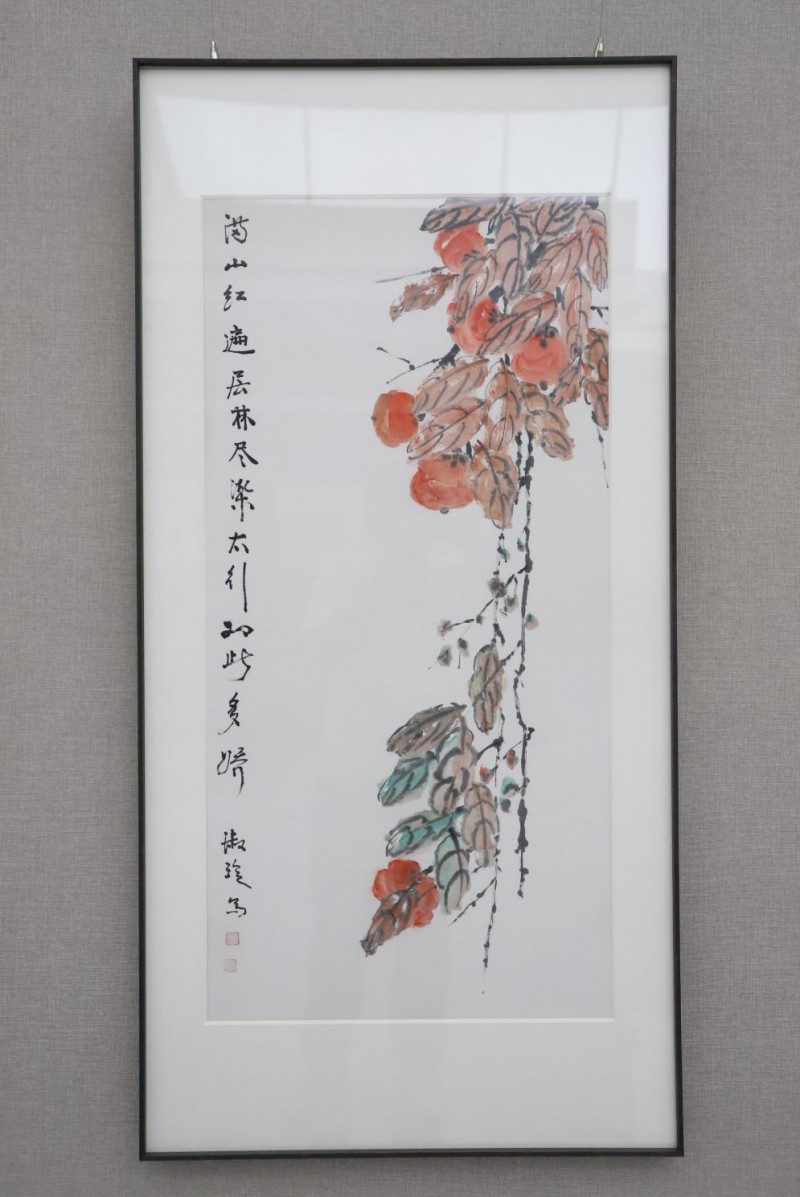 满山红遍层林尽染太行如此多娇
淑珍写